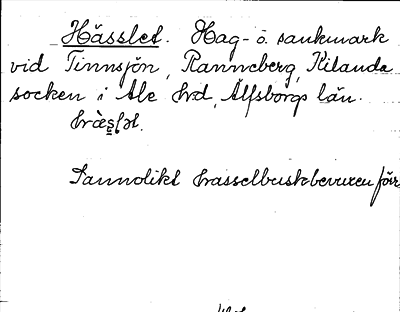 Hässlet. Hag- o. sankmark
vid Tinnsjön, Ranneberg, Kilanda
socken i Ale hrd, Älfsborgs län.
Sannolikt hasselbuskbevuxen förr